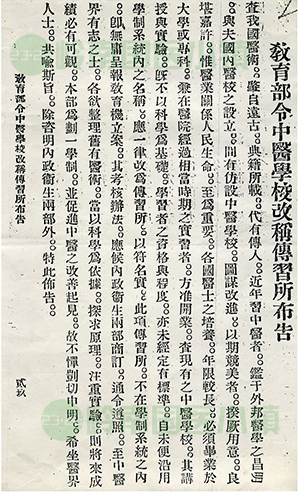 敎育部令中醫學校改稱傳習所布吿
查我國醫術。肇自遠古。典籍所載。代有傳人。近年習中醫者。鑒于外邦醫學之昌明
。與夫國內醫校之設立。間有仿設中醫學校。圖謀改進。以期競美者。揆厥用意。良
堪嘉許。惟醫業關係人民生命。至爲重要。各國醫士之培養。年限較長。必須畢業於
大學或專科。兼在醫院經過相當時期之實習者。方准開業。查現有之中醫學校。其講
授與實驗。旣不以科學爲基礎。學習者之資格與程度。亦未經定有標準。自未便沿用
學制系統內之名稱。應一律改爲傳習所。以符名實。此項傳習所。不在學制系統之內
。卽無庸呈報敎育機立案。其考核辦法。應候內政衛生兩部商訂。通令遵照。至中醫
界有志之士。各欲整理舊有醫術。當以科學爲依據。探求原理。注重實驗。則將來成
績必有可觀。本部爲劃一學制。並促進中醫之改善起見。故不憚剴切申明。希坐醫界
人士。共喻斯旨。除咨明內政衛生兩部外。特此佈吿。
敎育部令中醫學校改稱傳習所布吿
貳玖